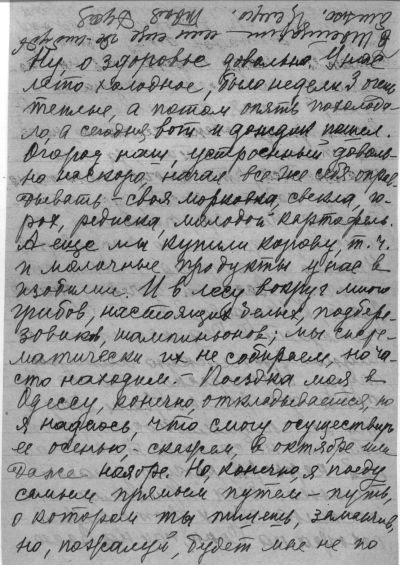 Ну, о здоровье довольно. У нас
лето холодное, было недели 3 очень
теплые, а потом опять похолода-
ло, а сегодня вот и дождик пошел.
Огород наш, устроенный доволь-
но наскоро начал все же себя оправ-
дывать – своя морковка, свекла, го-
рох, редиска, молодой картофель.
А еще мы купили корову, т. ч.
и молочные продукты у нас в
изобилии. И в лесу вокруг много
грибов, настоящих белых, подбере-
зовиков, шампиньонов; мы систе-
матически их не собираем, но ча-
сто находим. – Поездка моя в
Одессу, конечно откладывается, но
я надеюсь, что смогу осуществить
ее осенью, – скажем, в октябре или
даже ноябре. Но, конечно, я поеду
самым прямым путем – путь,
о котором ты пишешь, заманчив,
но, пожалуй, будет мне не по